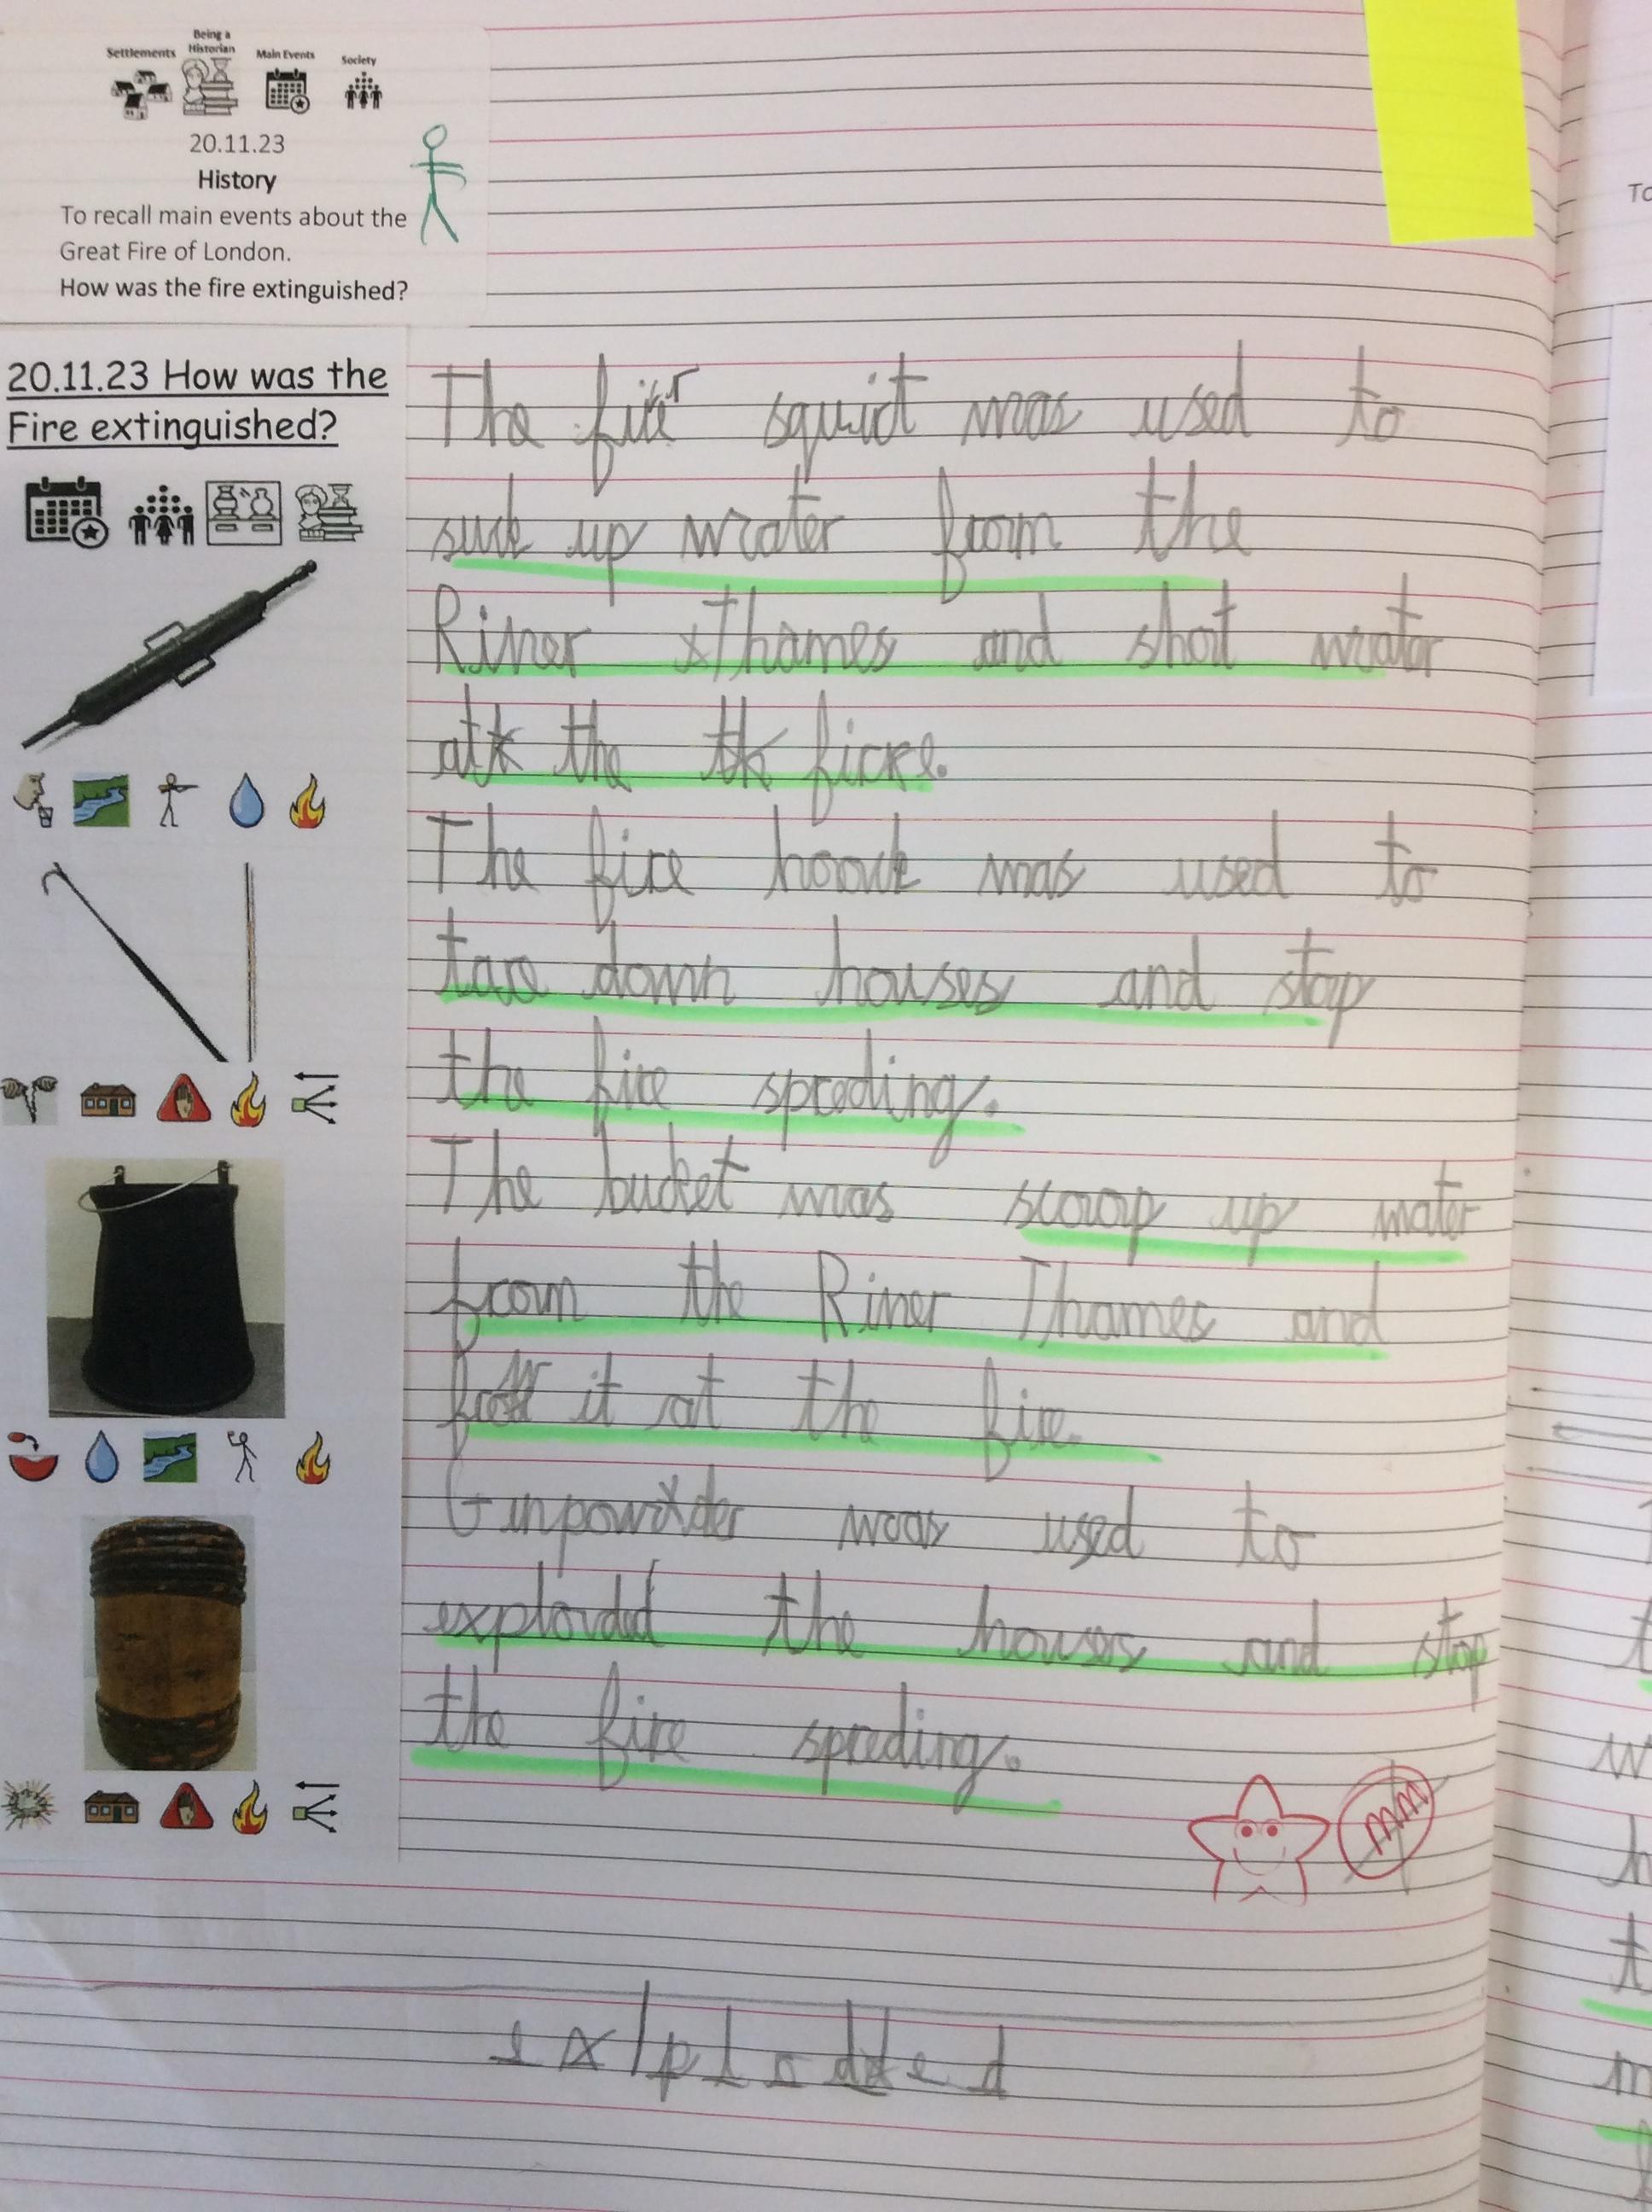 Settlements
Being a Historian
Main Events
Society
20.11.23
History
To recall main events about the
Great Fire of London.
How was the fire extinguished?
20.11.23 How was the
Fire extinguished?
The fire squirt was used to
suck up water from the
River Thames and short water
at the fire.
The fire hoouk was used to
tare down houses and stop
the fire spreding.
The bucket was scoop up water
from the River Thames and
it at the fire.
Gunpowder was used to
exploded the houses and stop
the fire spreding.
MM
exploded
To